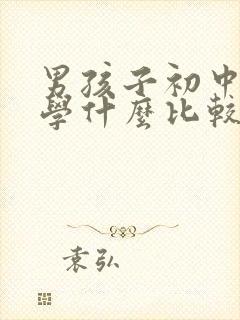 男孩子初中
學什麼比較
袁弘